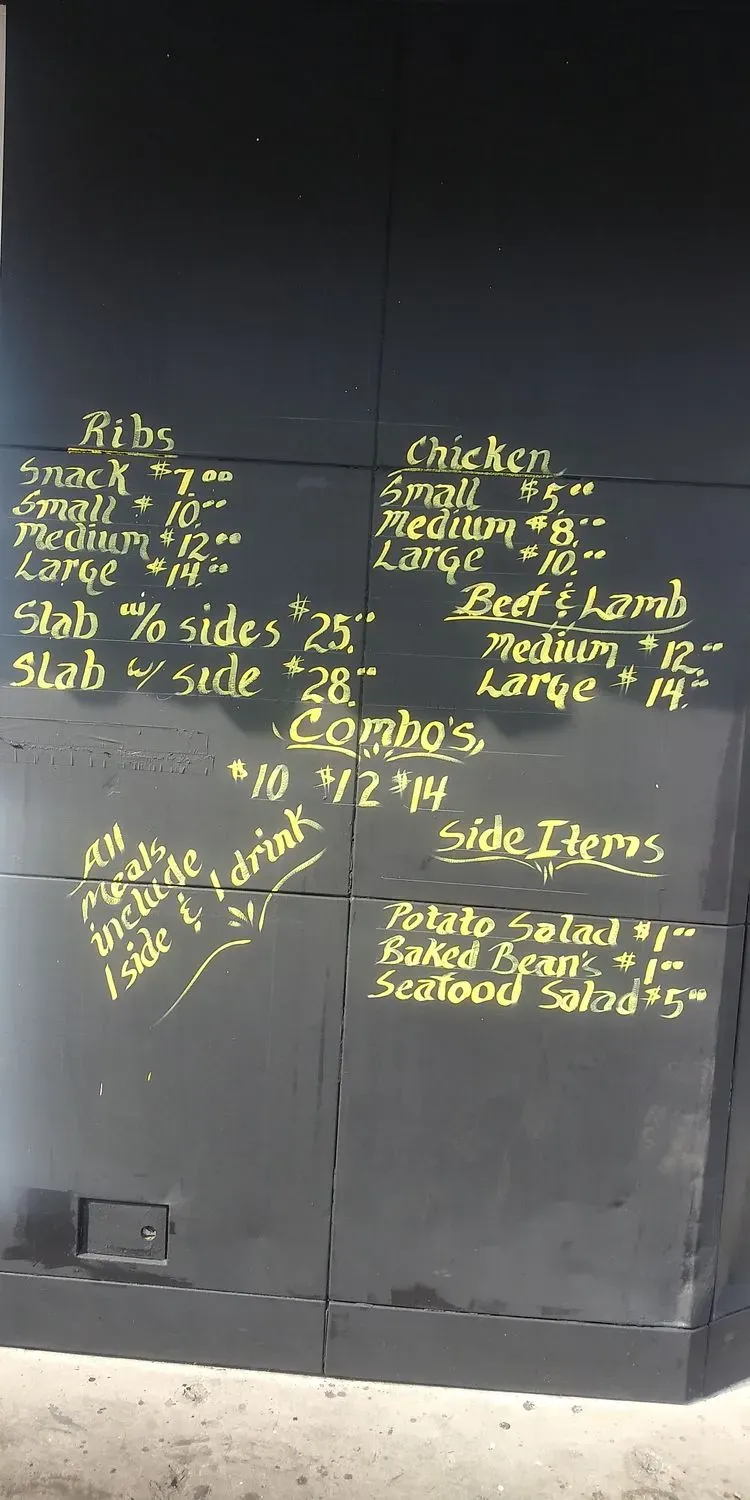 Ribs
Snack $7.00
Small $10.00
Medium $12.00
Large $14.00
Slab w/o sides $25.00
Slab w/ side $28.00
Chicken
Small $5.00
Medium $8.00
Large $10.00
Beef & Lamb
Medium $12.00
Large $14.00
Combo's
$10 $12 $14
All
meals
include
1 side & 1 drink
Side Items
Potato Salad $1.00
Baked Bean's $1.00
Seafood Salad $5.00